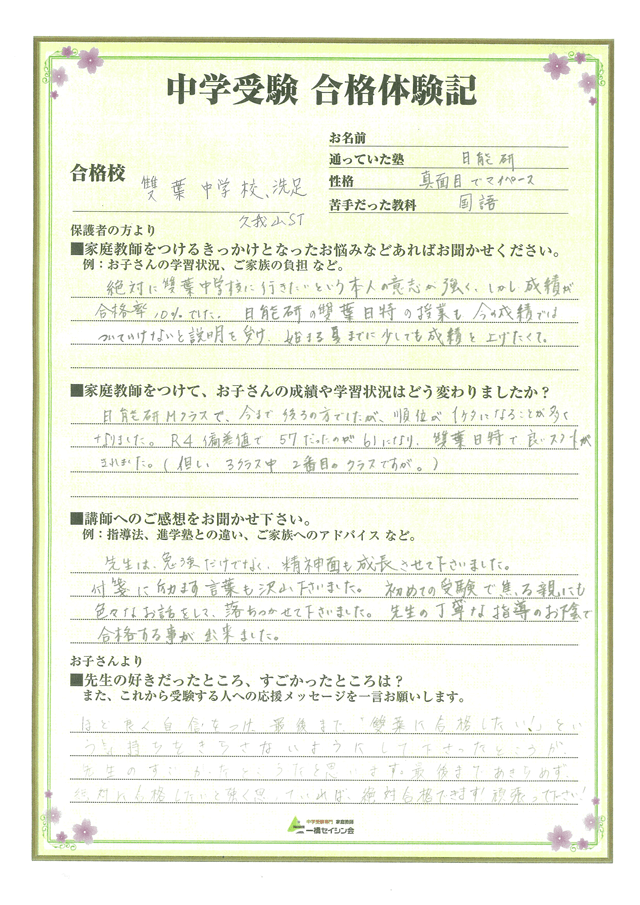 中学受験 合格体験記
お名前
通っていた塾 日能研
性格 真面目でマイペース
苦手だった教科 国語
合格校 雙葉中学校、洗足
久我山ST
保護者の方より
■家庭教師をつけるきっかけとなったお悩みなどあればお聞かせください。
例：お子さんの学習状況、ご家族の負担 など。
絶対に雙葉中学校に行きたいという本人の意志が強く、しかし成績が
合格率10%でした。日能研の雙葉日特の授業も今の成績では
ついていけないと説明を受け、始まる夏までに少しでも成績を上げたくて。
■家庭教師をつけて、お子さんの成績や学習状況はどう変わりましたか？
日能研Mクラスで、今まで後ろの方でしたが、順位が1ケタになることが多く
なりました。R4偏差値で57だったのが61になり、雙葉日特で良いスタートが
きれました。(但し、3クラス中2番目のクラスですが。)
■講師へのご感想をお聞かせ下さい。
例：指導法、進学塾との違い、ご家族へのアドバイス など。
先生は、勉強だけでなく、精神面も成長させて下さいました。
付箋に励ます言葉も沢山下さいました。初めての受験で焦る親にも
色々なお話をして、落ちつかせて下さいました。先生の丁寧な指導のお陰で
合格する事が出来ました。
お子さんより
■先生の好きだったところ、すごかったところは？
また、これから受験する人への応援メッセージを一言お願いします。
ほどよく自信をつけ、最後まで「雙葉に合格したい！」とい
う気持ちをきらさないようにして下さったところが、
先生のすごかったところだと思います。最後まであきらめず
絶対に合格したいと強く思っていれば、絶対合格できます！頑張って下さい！
中学受験専門 家庭教師
一橋セイシン会